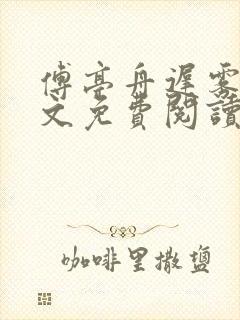 傅亭舟遲雾
文免費閱讀
咖啡里撒鹽